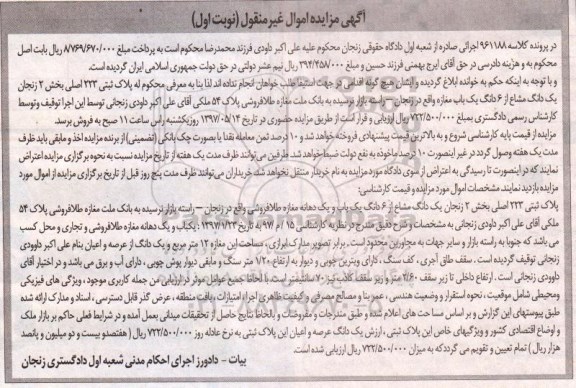 آگهی مزایده اموال غیر منقول (نوبت اول)
در پرونده کلاسه ۹۶۱۱۸۸ اجرائی صادره از شعبه اول دادگاه حقوقی زنجان محکوم علیه علی اکبر داودی فرزند محمدرضا محکوم است به پرداخت مبلغ ۸/۷۶۹/۶۷۰/۰۰۰ ریال بابت اصل
محکوم به و هزینه دادرسی در حق آقای ایرج بهمنی فرزند حسین و مبلغ ۳۹۴/۲۵۸/۰۰۰ ریال نیم عشر دولتی در حق دولت جمهوری اسلامی ایران گردیده است.
و با توجه به اینکه حکم به خوانده ابلاغ گردیده و ایشان هیچ گونه اقدامی در جهت استیفا طلب خواهان انجام نداده اند لذا بنا به معرفی محکوم له پلاک ثبتی ۲۲۳ اصلی بخش ۲ زنجان
یک دانگ مشاع از ۶ دانگ یک باب مغازه واقع در زنجان - راسته بازار نرسیده به بانک ملت مغازه طلافروشی پلاک ۵۴ ملکی آقای علی اکبر داودی زنجانی توسط این اجرا توقیف و توسط
کارشناس رسمی دادگستری بمبلغ ۷۲۲/۵۰۰/۰۰۰ ریال ارزیابی و قرار است از طریق مزایده حضوری در تاریخ ۱۳۹۷/۰۵/۱۴ روز یکشنبه راس ساعت ۱۱ صبح به فروش برسد.
مزایده از قیمت پایه کارشناسی شروع و به بالاترین قیمت پیشنهادی فروخته خواهد شد و ۱۰ درصد ثمن معامله نقدا یا بصورت چک بانکی (تضمینی) از برنده مزایده اخذ و مابقی باید ظرف
مدت یک هفته وصول گردد در غیر اینصورت ۱۰ درصد ماخوذه به نفع دولت ضبط خواهد شد. طرفین می توانند ظرف مدت یک هفته از تاریخ مزایده نسبت به نحوه برگزاری مزایده اعتراض
نمایند که در اینصورت تا رسیدگی به اعتراض از سوی دادگاه مورد مزایده به نام خریدار منتقل نخواهد شد. خریداران می توانند ظرف مدت پنج روز قبل از تاریخ برگزاری مزایده از اموال مورد
مزایده بازدید نمایند. مشخصات اموال مورد مزایده و قیمت کارشناسی:
پلاک ثبتی ۲۲۳ اصلی بخش ۲ زنجان یک دانگ مشاع از ۶ دانگ یک باب و یک دهانه مغازه طلافروشی واقع در زنجان – راسته بازار نرسیده به بانک ملت مغازه طلافروشی پلاک ۵۴
ملکی آقای علی اکبر داودی زنجانی به مشخصات و شرح دقیق مندرج در نظریه کارشناسی ۱۵ / م ۹۷ به تاریخ ۱۳۹۷/۰۱/۲۳ یکباب و یک دهانه مغازه طلافروشی و تجاری و محل کسب
می باشد که جنوبا به راسته بازار و سایر جهات به مجاورین محدود است. برابر تصویر مدارک ابرازی، مساحت این مغازه ۱۲ متر مربع و یک دانگ از عرصه و اعیان بنام علی اکبر داوودی
زنجانی توقیف گردیده است. سقف طاق آجری، کف سنگ، دارای ویترین چوبی و دیوار به ارتفاع ۱/۲۰ متر سنگ و مابقی دیوار پوش چوبی، دارای آب و برق می باشد و در اختیار آقای
داوودی زنجانی است. ارتفاع داخلی تا زیر سقف ۲/۶۰ متر و زیر سقف کاذب ۷۰ سانتیمتر است. با لحاظ جمیع عوامل موثر در ارزیابی من جمله کاربری موجود، ویژگی های فیزیکی
ومحیطی شامل موقعیت، نحوه استقرار و وضعیت هندسی، عمر بنا و مصالح مصرفی و کیفیت ظاهری اجرا، امتیازات، بافت منطقه، عرض گذر قابل دسترسی، اسناد و مدارک ارائه شده
طبق پیوستهای این گزارش و بر اساس مساحت های اعلام شده و طبق مندرجات و مفروضات و بالحاظ نتایج حاصل از تحقیقات میدانی بعمل آمده و در شرایط فعلی حاکم بر بازار ملک
و اوضاع اقتصادی کشور و ویژگیهای خاص این پلاک ثبتی، ارزش یک دانگ عرصه و اعیان این پلاک ثبتی به نرخ عادله روز ۷۲۲/۵۰۰/۰۰۰ ریال ( هفتصدو بیست و دو میلیون و پانصد
هزار ریال ) تمام تعیین و تقویم می گردد که به میزان ۷۲۲/۵۰۰/۰۰۰ ریال ارزیابی شده است.
بیات - دادورز اجرای احکام مدنی شعبه اول دادگستری زنجان